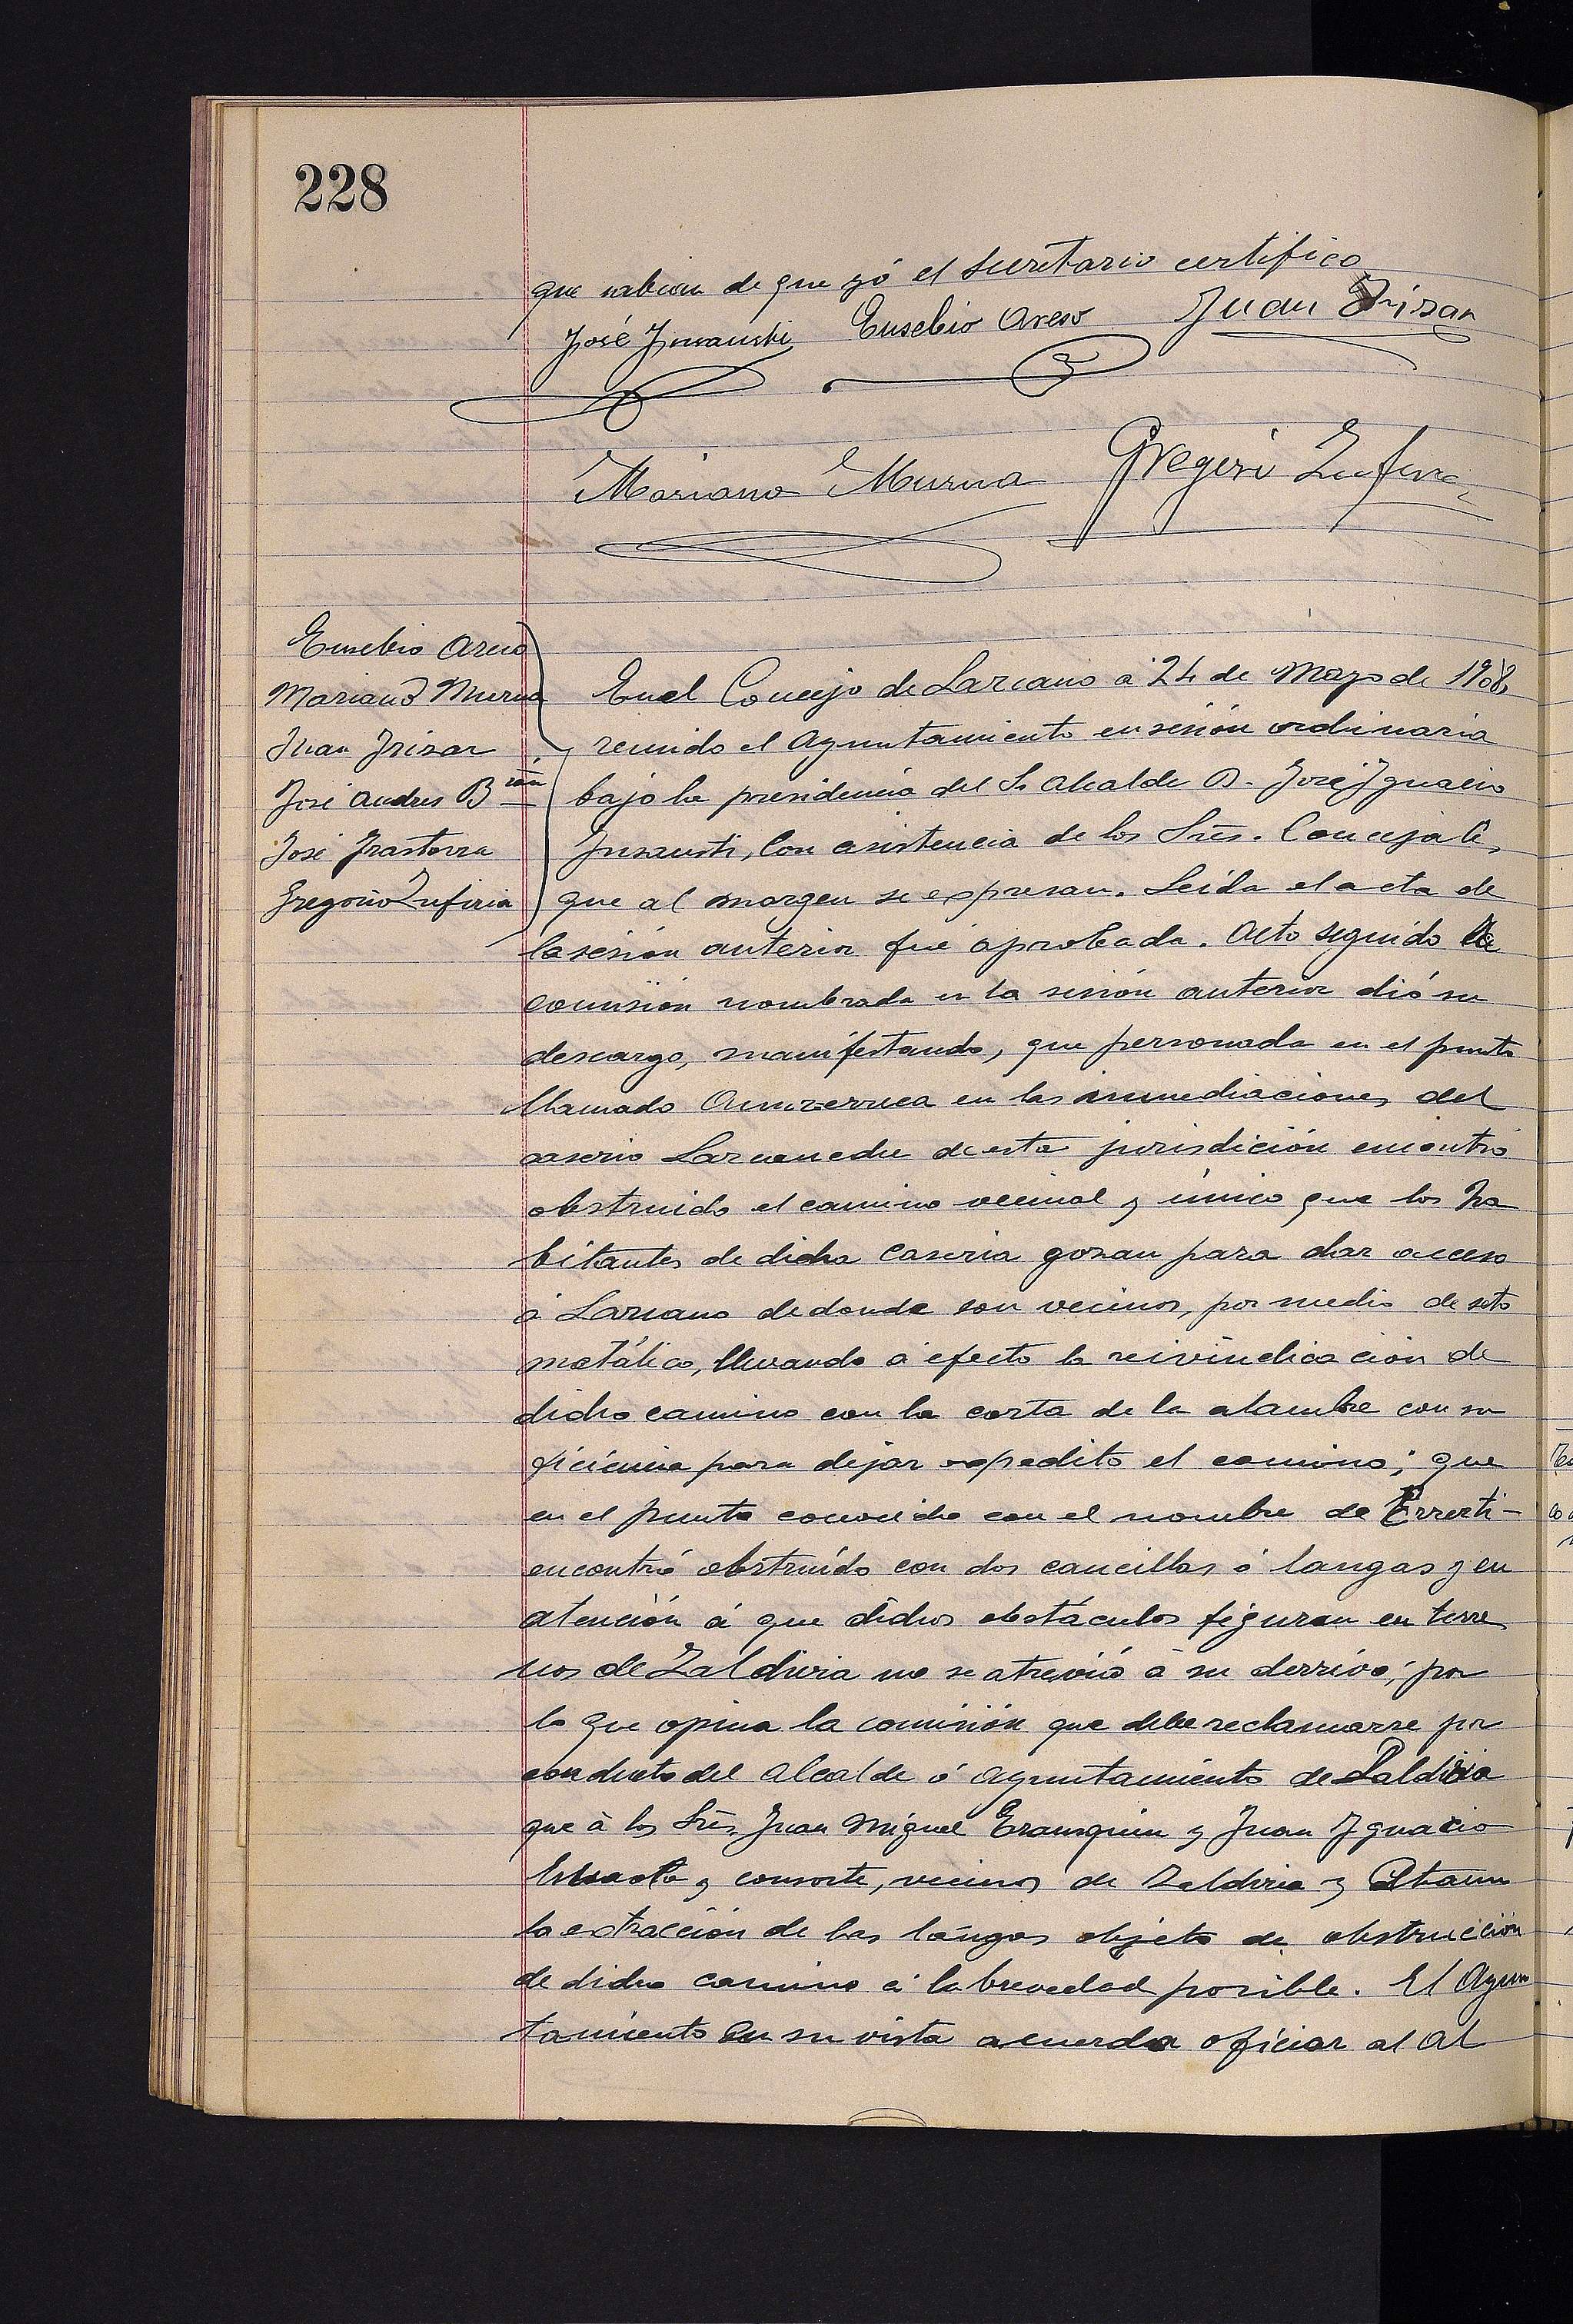 228
que sabian de que yó el Secretario certifico
José Ynsausti Eusebio Areso Juan Irizar
Mariano Murua Gregorio Zufiria
Eusebio Areso
Mariano Murua
Juan Irizar
José Andres B
José Irastorza
Gregorio Zufiria
En el Concejo de Lazcano á 24 de Mayo de 1908,
reunido el Ayuntamiento en sesión ordinaria
bajo la presidencia del Sr Alcalde D. José Ygnacio
Ynsausti, con asistencia de los Sres. Concejales,
que al margen se expresan. Leida el acta de
la sesión anterior fué aprobada. Acto seguido la
comisión nombrada en la sesión anterior dió su
descargo, manifestando, que personada en el punto
llamado en las inmediaciones del
caserio de esta jurisdición encontró
obstruido el camino vecinal y único que los ha
bitantes de dicha caseria gozan para dar acceso
á Lazcano de donde son vecinos, por medio de seto
metálico, llevando á efecto la reivindicación de
dicho camino con la corta de la alambre con su
ficiencia para dejar expedito el camino; que
en el punto conocido con el nombre de Errerti-
encontró obstruído con dos cancillas ó langas y en
atención á que dichos obstáculos figuran en terre
nos de Zaldivia no se atrevió á su derrivo; por
lo que opina la comisión que debe reclamarse por
conducto del Alcalde ó Ayuntamiento de Zaldivia
que à los Sres. Juan Miguel Erauzquin y Juan Ygnacio
y consorte, vecinos de Zaldivia y Ataun
la extracción de las langas objeto de obstrucción
de dicho camino á la brevedad posible. El Ayun
tamiento en su vista acuerda oficiar al Al